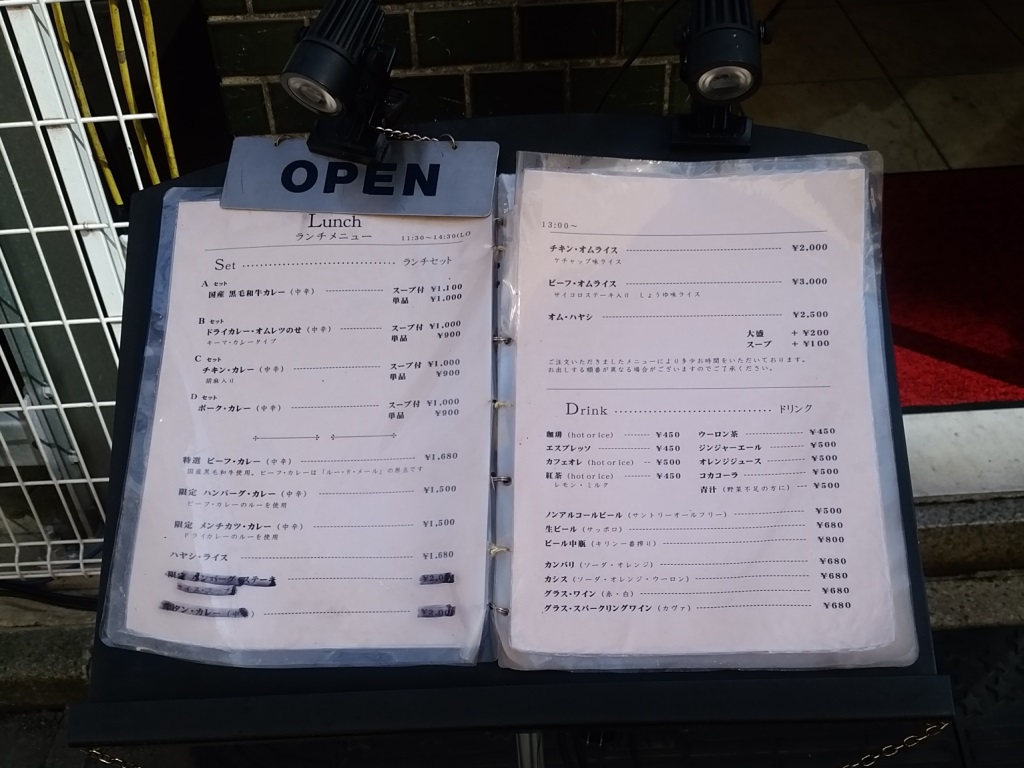 OPEN
Lunch
ランチメニュー 11:30～14:30(LO
Set ランチセット
A セット
国産 黒毛和牛カレー（中辛） スープ付 ¥1,100
単品 ¥1,000
B セット
ドライカレー・オムレツのせ（中辛） スープ付 ¥1,000
キーマ・カレータイプ 単品 ¥900
C セット
チキン・カレー（中辛） スープ付 ¥1,000
胡麻入り 単品 ¥900
D セット
ポーク・カレー（中辛） スープ付 ¥1,000
単品 ¥900
特選 ビーフ・カレー（中辛） ¥1,680
国産黒毛和牛使用。ビーフ・カレーは「ルー・ド・メール」の原点です
限定 ハンバーグ・カレー（中辛） ¥1,500
ビーフ・カレーのルーを使用
限定 メンチカツ・カレー（中辛） ¥1,500
ドライカレーのルーを使用
ハヤシ・ライス ¥1,680
13:00～
チキン・オムライス ¥2,000
ケチャップ味ライス
ビーフ・オムライス ¥3,000
サイコロステーキ入り しょうゆ味ライス
オム・ハヤシ ¥2,500
大盛 +¥200
スープ +¥100
ご注文いただきましたメニューにより多少お時間をいただいております。
お出しする順番が異なる場合がございますのでご了承ください。
Drink ドリンク
珈琲 (hot or ice) ¥450
エスプレッソ ¥450
カフェオレ (hot or ice) ¥500
紅茶 (hot or ice) ¥450
レモン・ミルク
ウーロン茶 ¥450
ジンジャーエール ¥500
オレンジジュース ¥500
コカコーラ ¥500
青汁（野菜不足の方に） ¥500
ノンアルコールビール（サントリーオールフリー） ¥500
生ビール（サッポロ） ¥680
ビール中瓶（キリン一番搾り） ¥800
カンパリ（ソーダ・オレンジ） ¥680
カシス（ソーダ・オレンジ・ウーロン） ¥680
グラス・ワイン（赤・白） ¥680
グラス・スパークリングワイン（カヴァ） ¥680